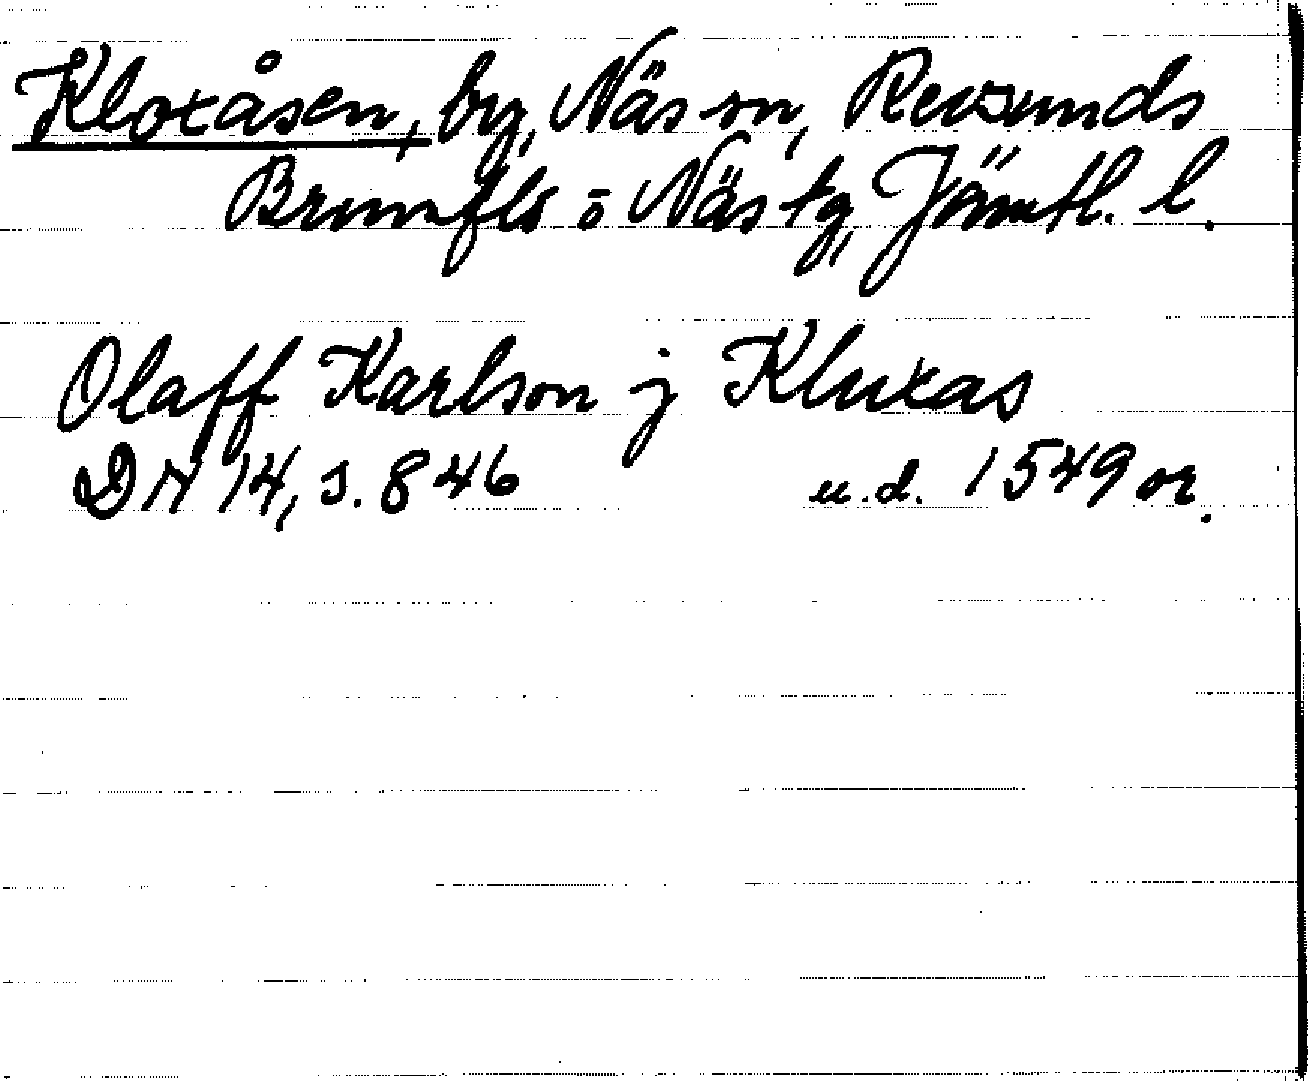 Kloxåsen, by, Näs sn, Revsunds
Brunnfls o Näs tg, Jämtl. l.
Olaff Karlson j Kluxas
DN 14, s. 846 u.d. 1549 or.